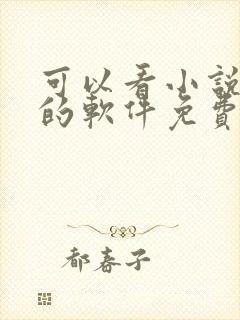 可以看小說
的軟件免費
都嘉子